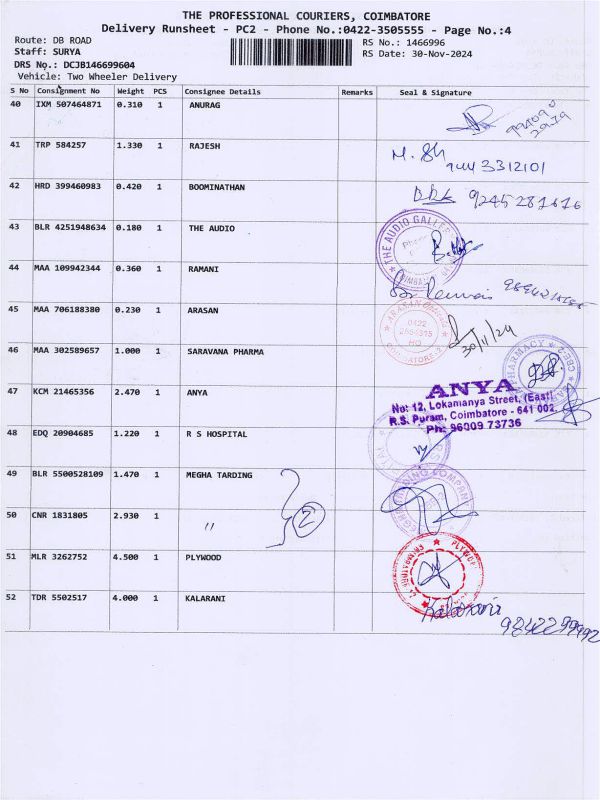 THE PROFESSIONAL COURIERS, COIMBATORE
Delivery Runsheet - PC2 - Phone No.:0422-3505555 - Page No.:4
Route: DB ROAD RS No.: 1466996
Staff: SURYA RS Date: 30-Nov-2024
DRS No.: DCJB146699604
Vehicle: Two Wheeler Delivery
S No Consignment No Weight PCS Consignee Details Remarks Seal & Signature
40 IXM 507464871 0.310 1 ANURAG
41 TRP 584257 1.330 1 RAJESH
42 HRD 399460983 0.420 1 BOOMINATHAN
43 BLR 4251948634 0.180 1 THE AUDIO THE AUDIO GALLERY
44 MAA 109942344 0.360 1 RAMANI
45 MAA 706188380 0.230 1 ARASAN ARASAN
0422
HO
COIMBATORE-2
30/11/24
46 MAA 302589657 1.000 1 SARAVANA PHARMA PHARMACY CBE-2
47 KCM 21465356 2.470 1 ANYA ANYA
No: 12, Lokamanya Street, (East)
R.S. Puram, Coimbatore - 641 002.
Ph: 96009 73736
48 EDQ 20904685 1.220 1 R S HOSPITAL
49 BLR 5500528109 1.470 1 MEGHA TARDING TRADING COMPANY
50 CNR 1831805 2.930 1 〃 2
51 MLR 3262752 4.500 1 PLYWOOD
52 TDR 5502517 4.000 1 KALARANI Kalarani
9842299992